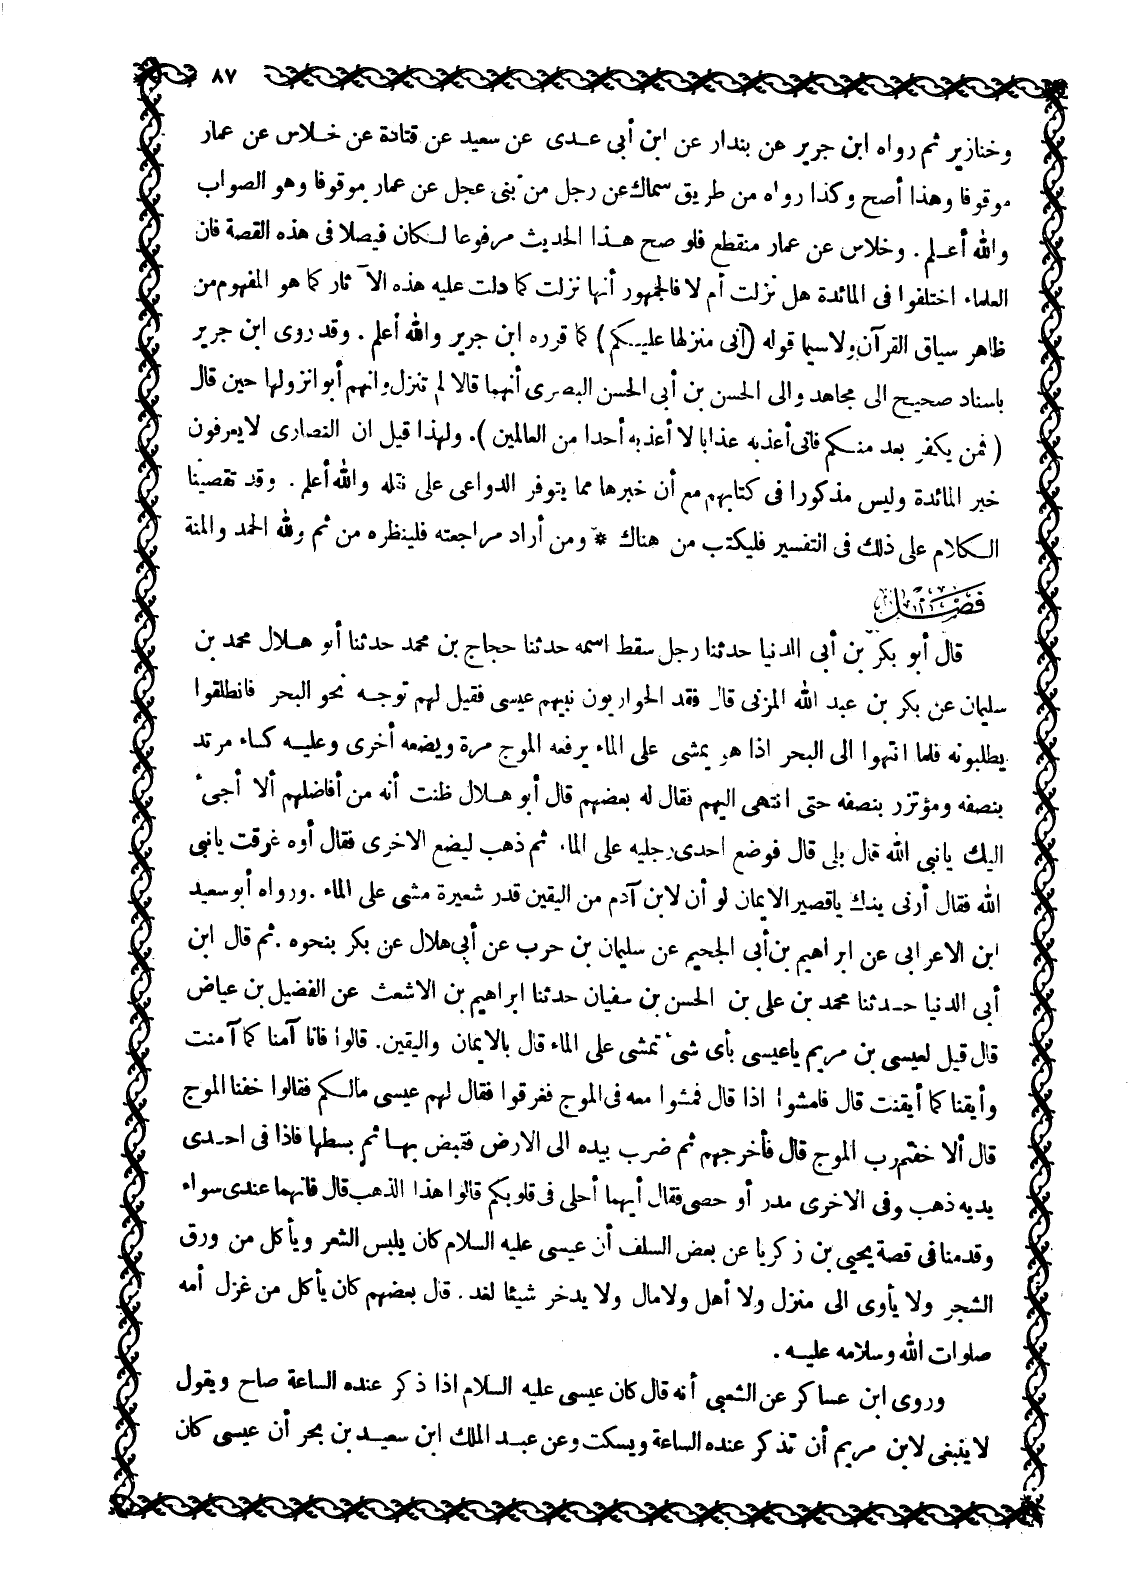 ٨٧
وخنازير ثم رواه ابن جرير عن بندار عن ابن أبى عدى عن سعيد عن قتادة عن خلاس عن عمار
موقوفا وهذا أصح وكذا رواه من طريق سماك عن رجل من بنى عجل عن عمار موقوفا وهو الصواب
والله أعلم . وخلاس عن عمار منقطع فلو صح هذا الحديث مرفوعا لكان فيصلا فى هذه القصة فان
العلماء اختلفوا فى المائدة هل نزلت أم لا فالجمهور أنها نزلت كما دلت عليه هذه الآثار كما هو المفهوم من
ظاهر سياق القرآن ولاسيما قوله (إنى منزلها عليكم) كما قرره ابن جرير والله أعلم . وقد روى ابن جرير
باسناد صحيح الى مجاهد والى الحسن بن أبى الحسن البصرى أنهما قالا لم تنزل وانهم أبوا نزولها حين قال
( فمن يكفر بعد منكم فانى أعذبه عذابا لا أعذبه أحدا من العالمين ) . ولهذا قيل ان النصارى لا يعرفون
خبر المائدة وليس مذكورا فى كتابهم مع أن خبرها مما يتوفر الدواعى على نقله والله أعلم . وقد تقصينا
الكلام على ذلك فى التفسير فليكتب من هناك * ومن أراد مراجعته فلينظره من ثم ولله الحمد والمنة
فصل
قال أبو بكر بن أبى الدنيا حدثنا رجل سقط اسمه حدثنا حجاج بن محمد حدثنا أبو هلال محمد بن
سليمان عن بكر بن عبد الله المزنى قال فقد الحواريون نبيهم عيسى فقيل لهم توجه نحو البحر فانطلقوا
يطلبونه فلما انتهوا الى البحر اذا هو يمشى على الماء يرفعه الموج مرة ويضعه أخرى وعليه كساء مرتد
بنصفه ومؤتزر بنصفه حتى انتهى اليهم فقال له بعضهم قال أبو هلال ظنت أنه من أفاضلهم ألا أجىء
اليك يانبى الله قال بلى قال فوضع احدى رجليه على الماء ثم ذهب ليضع الاخرى فقال أوه غرقت يانبى
الله فقال أرنى يدك ياقصير الايمان لو أن لابن آدم من اليقين قدر شعيرة مشى على الماء . ورواه أبو سعيد
ابن الاعرابى عن ابراهيم بن أبى الجحيم عن سليمان بن حرب عن أبى هلال عن بكر بنحوه . ثم قال ابن
أبى الدنيا حدثنا محمد بن على بن الحسن بن سفيان حدثنا ابراهيم بن الاشعث عن الفضيل بن عياض
قال قيل لعيسى بن مريم ياعيسى بأى شىء تمشى على الماء قال بالايمان واليقين. قالوا فانا آمنا كما آمنت
وأيقنا كما أيقنت قال فامشوا اذا قال فمشوا معه فى الموج فغرقوا فقال لهم عيسى مالكم فقالوا خفنا الموج
قال ألا خفتم رب الموج قال فأخرجهم ثم ضرب بيده الى الارض فقبض بها ثم بسطها فاذا فى احدى
يديه ذهب وفى الاخرى مدر أو حصى فقال أيهما أحلى فى قلوبكم قالوا هذا الذهب قال فانهما عندى سواء
وقدمنا فى قصة يحيى بن زكريا عن بعض السلف أن عيسى عليه السلام كان يلبس الشعر ويأكل من ورق
الشجر ولا يأوى الى منزل ولا أهل ولا مال ولا يدخر شيئا لغد . قال بعضهم كان يأكل من غزل أمه
صلوات الله وسلامه عليه .
وروى ابن عساكر عن الشعبى أنه قال كان عيسى عليه السلام اذا ذكر عنده الساعة صاح ويقول
لا ينبغى لابن مريم أن تذكر عنده الساعة ويسكت وعن عبد الملك ابن سعيد بن بحر أن عيسى كان